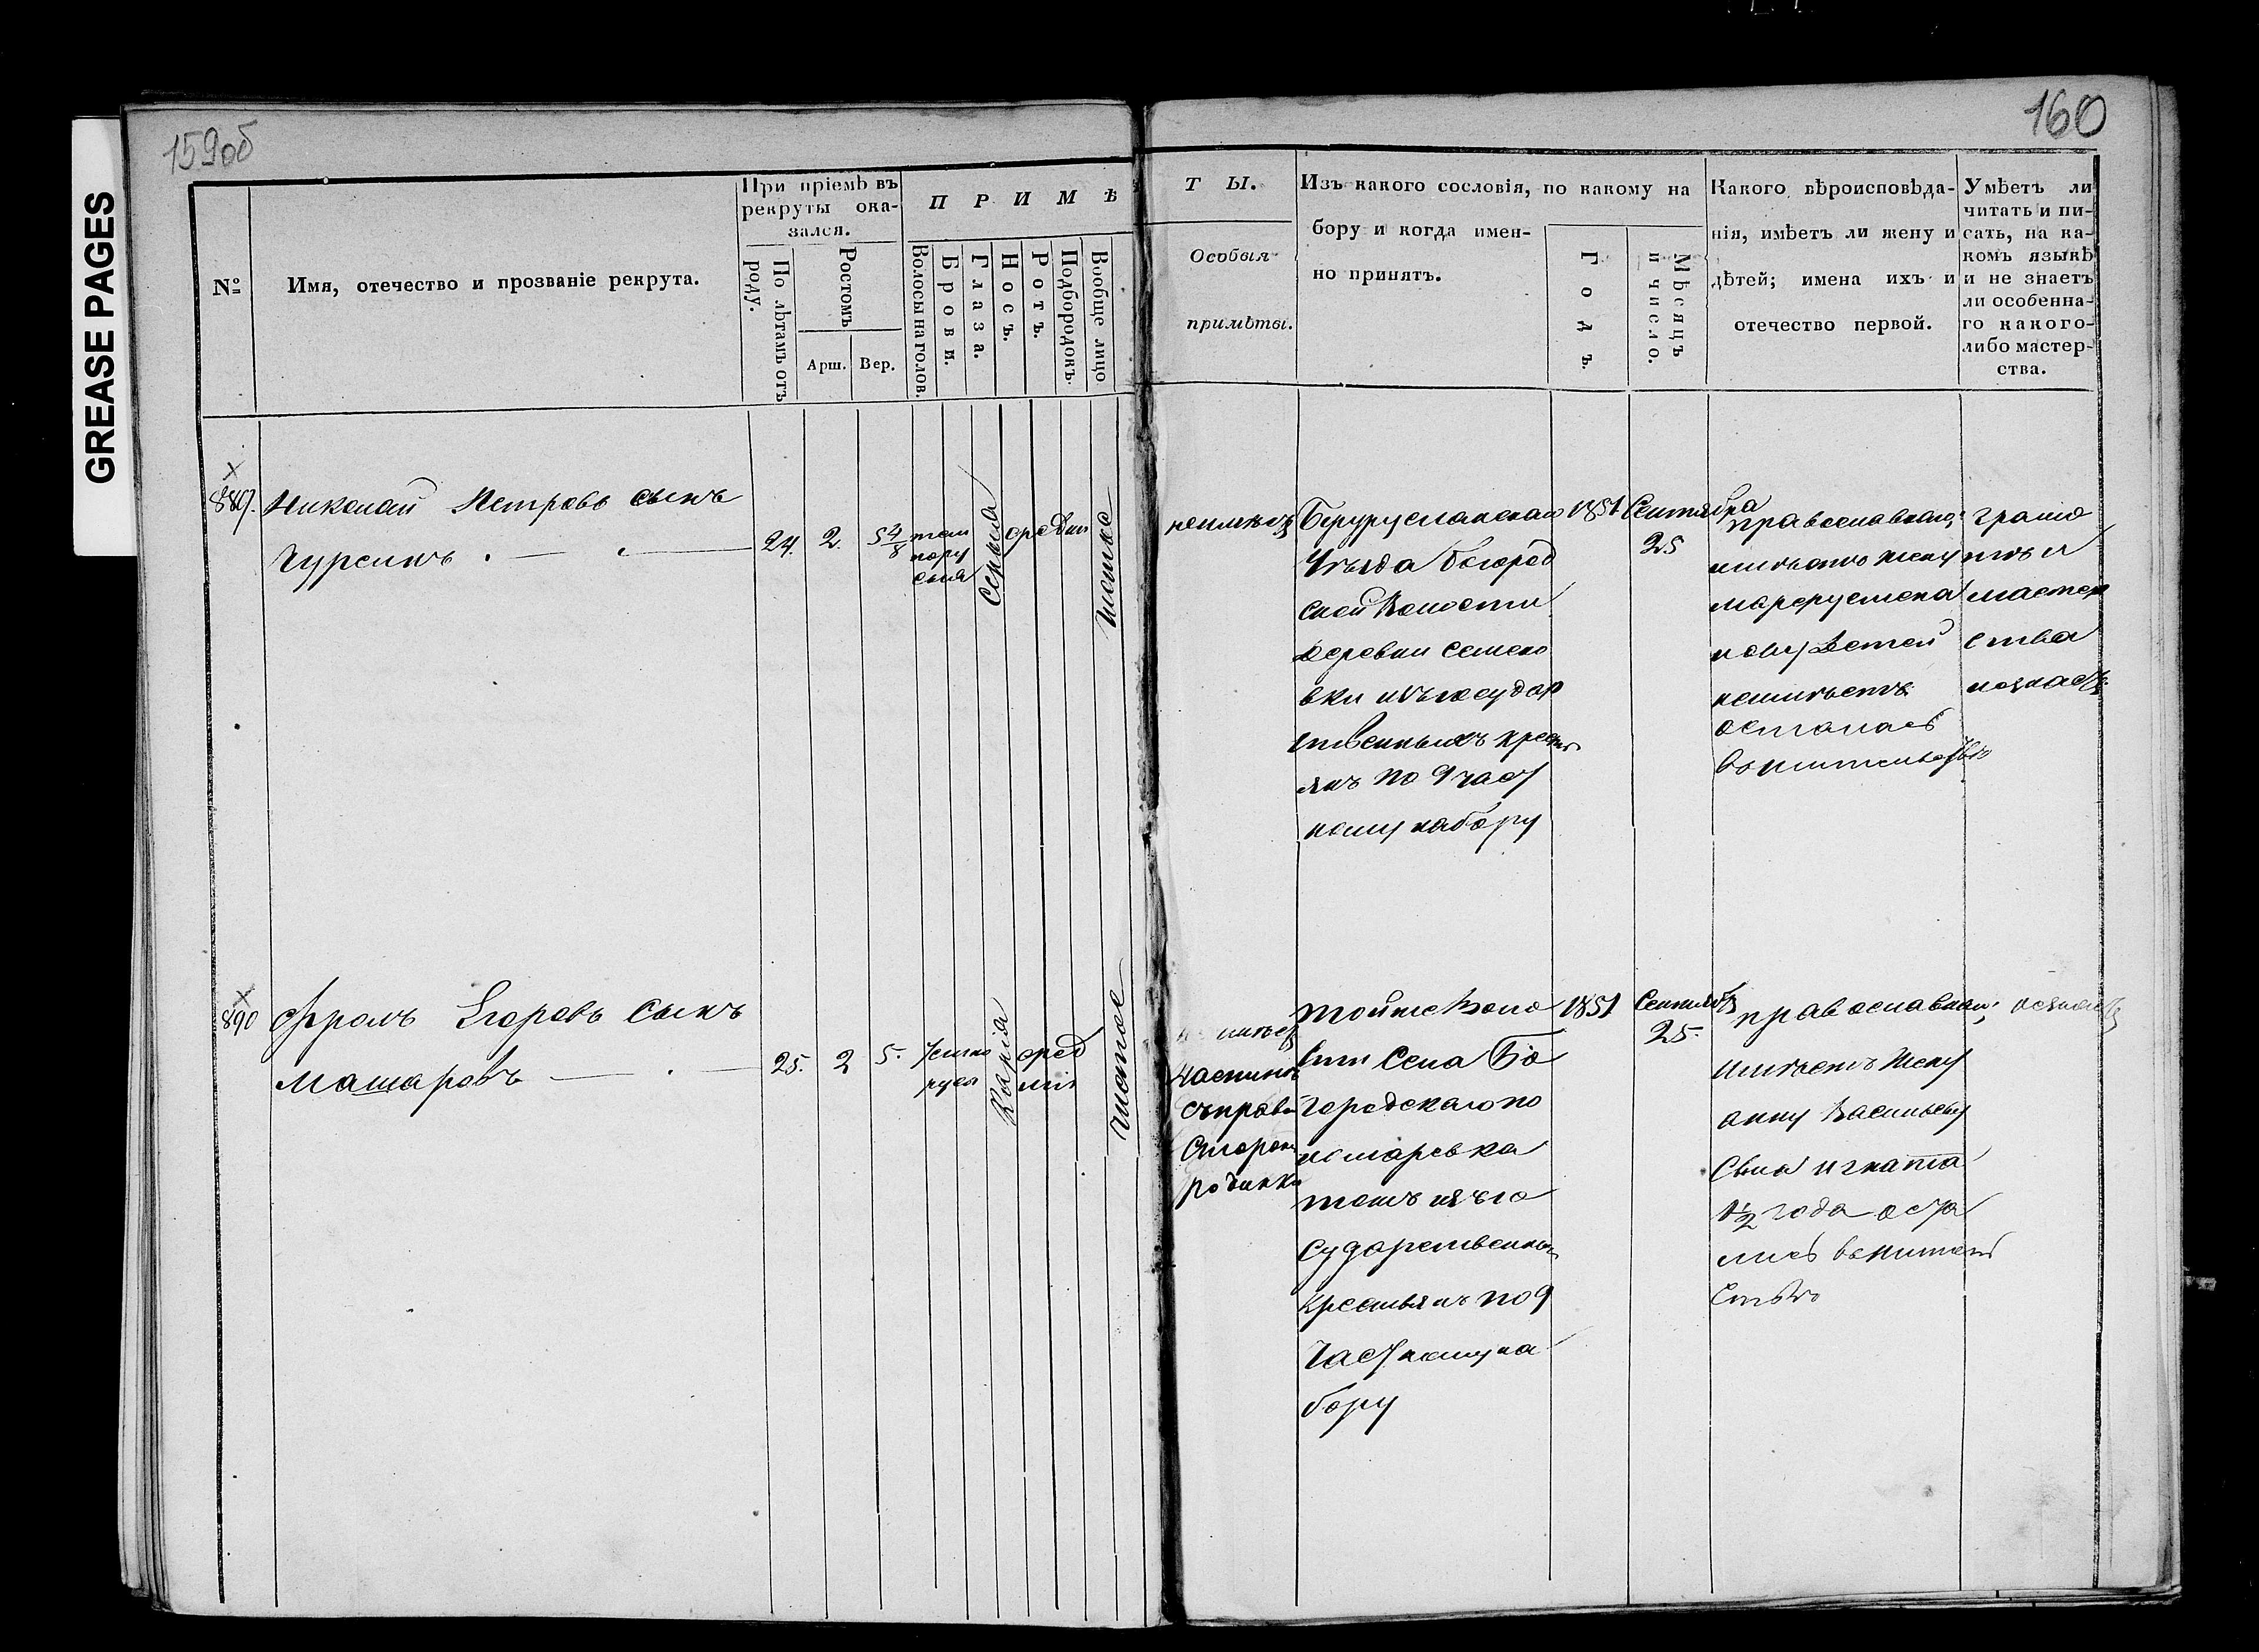 GREASE PAGES
159об
160
№
Имя, отечество и прозваніе рекрута.
При пріемѣ въ
рекруты ока-
зался.
По лѣтамъ отъ
роду.
Ростомъ
Арш.
Вер.
ПРИМѢ
Волосы на голов.
Брови.
Глаза.
Носъ.
Ротъ.
Подбородокъ.
Вообще лицо
ТЫ.
Особыя
примѣты.
Изъ какого сословія, по какому на
бору и когда имен-
но принятъ.
Годъ.
Мѣсяцъ
и число.
Какого вѣроисповѣда-
нія, имѣетъ ли жену и
дѣтей; имена ихъ и
отечество первой.
Умѣетъ ли
читать и пи-
сать, на ка-
комъ языкѣ
и не знаетъ
ли особенна-
го какого-
либо мастер-
ства.
889.
Николай Петровъ сынъ
Чурсинъ
24.
2.
5 4/8
тем
нору
сыя
Серыя
средни
чистое
неимѣетъ
Бугурусланскаго
Уѣзда Богород
ской Волости
деревни Семено
вки изъ государ
ственныхъ крестья
янъ по 9 част
ному набору
1851
Сентября
25
православнаго,
имѣетъ жену
детей
неимѣетъ
осталась
вжительстве
грамо
ты и
мастер
ства
незнаетъ
890
Фролъ Егоровъ сынъ
Машаровъ
25.
2
5.
темно
русы
Карія
сред
ніе
чистое
имѣет
съправой
стороны
родинка
тойже Воло
сти Села Бо
городскаго по
тожъ изъ го
сударственны
крестьянъ по 9
част ному на
бору
1851
Сентябр
25.
православнаго,
имѣетъ Жену
анну Васильеву
Сына игната
1/2 года оста
лись вжитель
стве
незнаетъ